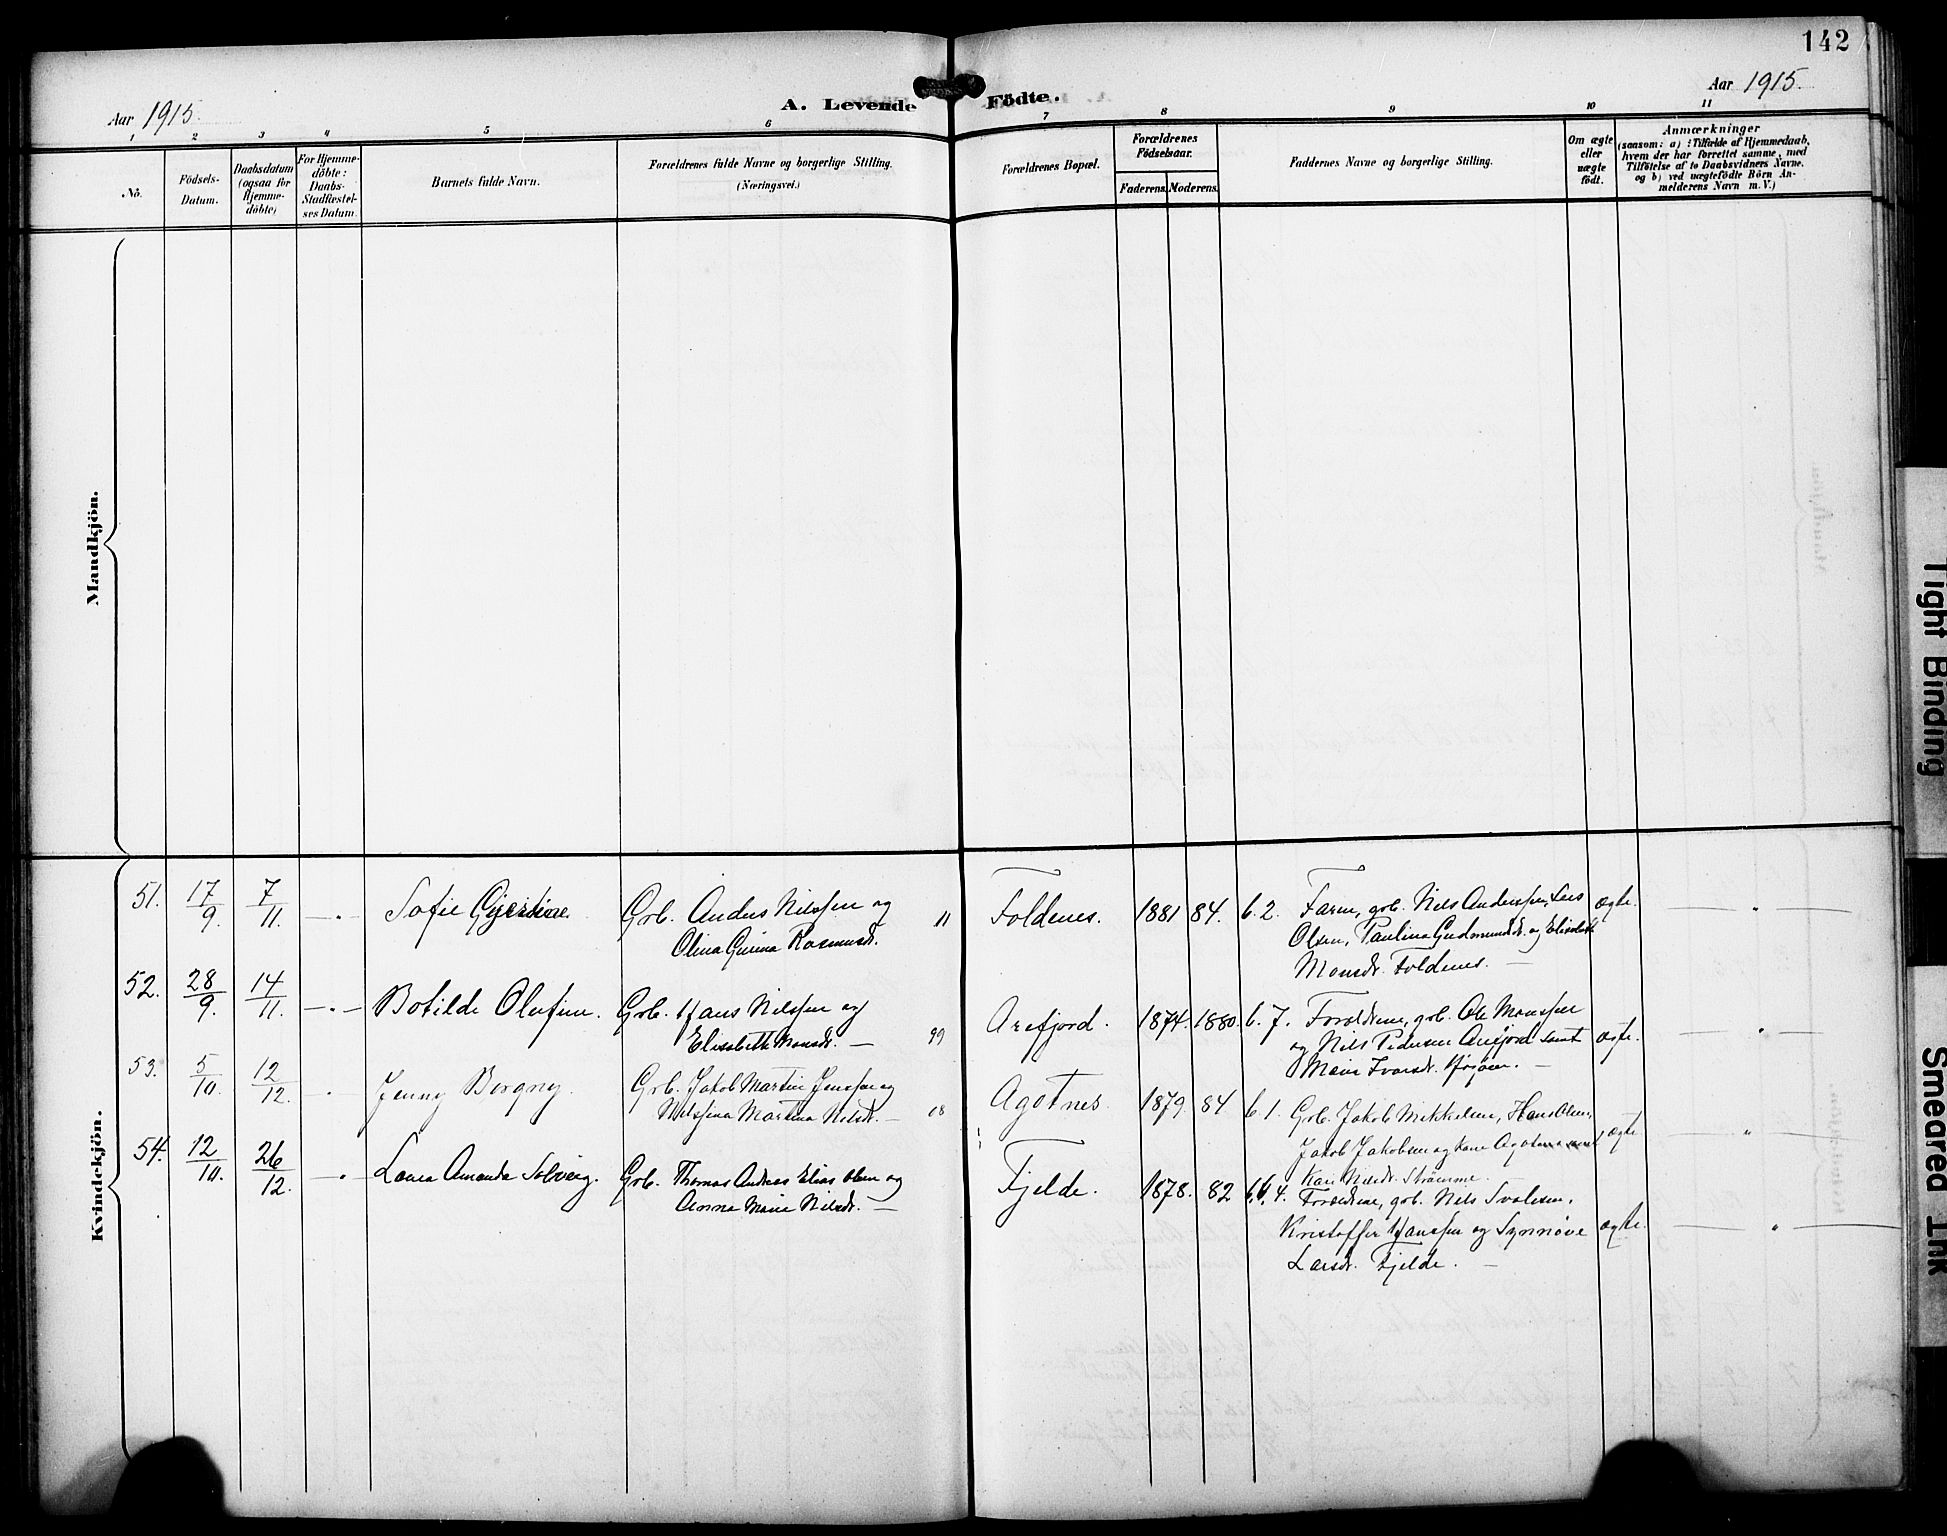 142
Aar 1915.
A. Levende Födte.
Aar 1915.
1 2 3 4 5 6 7 8 9 10 11
No.
Födsels-Datum.
Daabsdatum (ogsaa for Hjemme-döbte)
For Hjemme-döbte: Daabs-Stadfæstel-ses Datum.
Barnets fulde Navn.
Forældrenes fulde Navne og borgerlige Stilling.
(Næringsvei.)
Forældrenes Bopæl.
Forældrenes Födselsaar.
Faderens. Moderens.
Faddernes Navne og borgerlige Stilling.
Om ægte eller uægte födt.
Anmærkninger
(saasom: a) i Tilfælde af Hjemmedaab,
hvem der har forrettet samme, med
Tilföielse af to Daabsvidners Navne,
og b) ved uægtefödte Börn An-
melderens Navn m. V.)
Mandkjön.
Kvindekjön.
51. 17/9. 7/11. — " — Sofie Gjertine. Grb. Anders Nilssen og 11 Foldenes. 1881 84. b. 2. Faren, grb. Nils Anderssen, Lars ægte. — " —
Olina Gurina Rasmusdr. Olsen, Paulina Gudmundsdr. og Elisabeth
Monsdr. Foldenes. —
52. 28/9. 14/11. — " — Botilde Olufine. Grb. Hans Nilssen og 99 Arefjord. 1874. 1880. b. 7. Forældrene, grb. Ole Monssen ægte. — " —
Elisabeth Monsdr. — og Nils Pedersen Arefjord samt
Marie Ivarsdr.
53. 5/10. 12/12. " Jenny Borgny. Grb. Jakob Martin Jenssen og 08 Agotnes. 1879. 84 b. 1. Grb. Jakob Mikkelsen, Hans Olsen, ægte "
Nilssina Martina Nilsdr. — Jakob Jakobsen og
Kari Nilsdr. Strømme.
54. 12/10. 26/12. — " — Laura Amanda Solveig. Grb. Thomas Andreas Elias Olsen og Fjelde. 1878. 82 b. 4. Forældrene, grb. Nils ægte. — " —
Anna Marie Nilsdr. — Kristoffer Hanssen og Synnøve
Larsdr. Fjelde. —
Tight Binding
Smeared Ink